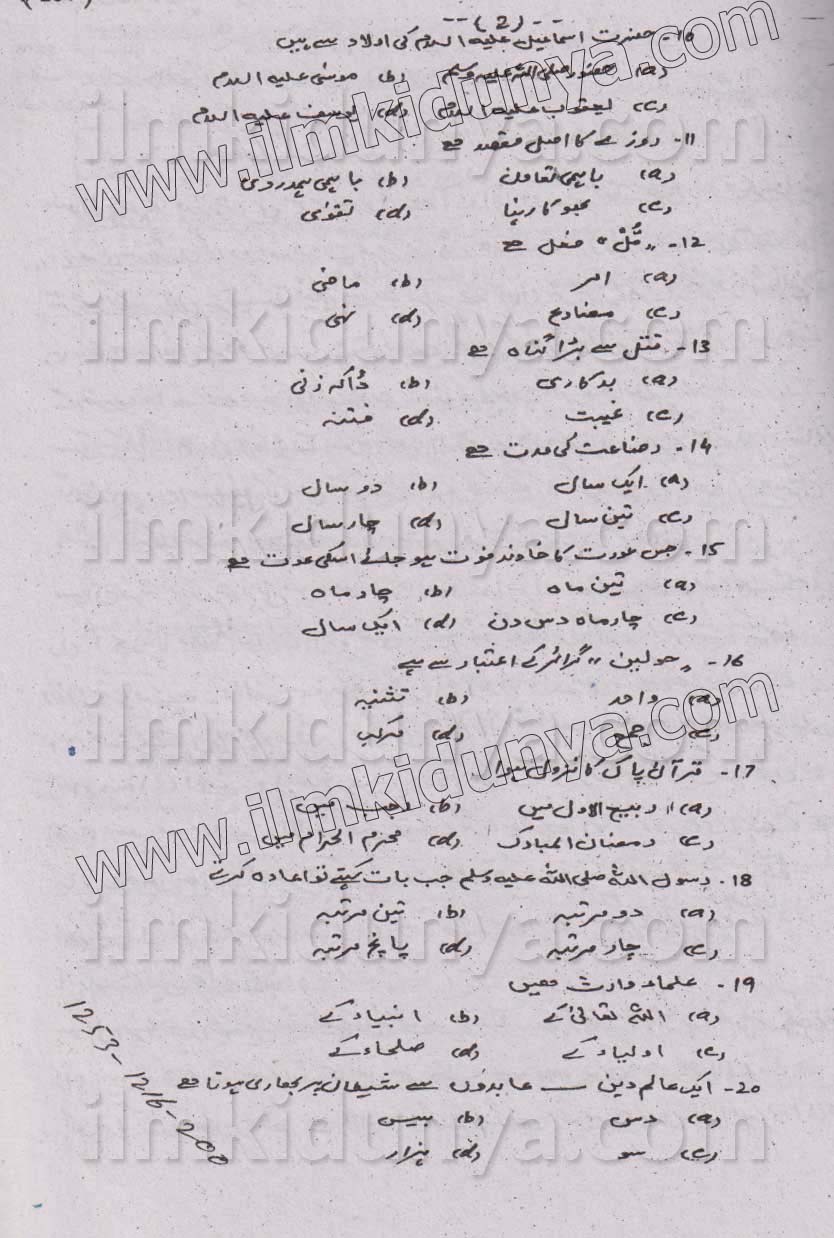 -- (2) --
10- حضرت اسماعیل علیہ السلام کی اولاد سے ہیں
(a) حضور صلی اللہ علیہ وسلم (b) موسیٰ علیہ السلام
(c) یعقوب علیہ السلام (d) یوسف علیہ السلام
11- روزے کا اصل مقصد ہے
(a) باہمی تعاون (b) باہمی ہمدردی
(c) بھوکا رہنا (d) تقویٰ
12- "قُلْ" فعل ہے
(a) امر (b) ماضی
(c) مضارع (d) نہی
13- قتل سے بڑا گناہ ہے
(a) بدکاری (b) ڈاکہ زنی
(c) غیبت (d) فتنہ
14- رضاعت کی مدت ہے
(a) ایک سال (b) دو سال
(c) تین سال (d) چار سال
15- جس عورت کا خاوند فوت ہو جائے اسکی عدت ہے
(a) تین ماہ (b) چار ماہ
(c) چار ماہ دس دن (d) ایک سال
16- "حولین" گرائمر کے اعتبار سے ہے
(a) واحد (b) تثنیہ
(c) جمع (d) مرکب
17- قرآن پاک کا نزول ہوا
(a) ربیع الاول میں (b) رجب میں
(c) رمضان المبارک (d) محرم الحرام میں
18- رسول اللہ صلی اللہ علیہ وسلم جب بات کہتے تو اعادہ کرتے
(a) دو مرتبہ (b) تین مرتبہ
(c) چار مرتبہ (d) پانچ مرتبہ
19- علماء وارث ہیں
(a) اللہ تعالیٰ کے (b) انبیاء کے
(c) اولیاء کے (d) صلحاء کے
20- ایک عالم دین ــ عابدوں سے شیطان پر بھاری ہوتا ہے
(a) دس (b) بیس
(c) سو (d) ہزار
1253-1216-200
www.ilmkidunya.com
www.ilmkidunya.com
ilmkidunya.com
ilmkidunya.com
ilmkidunya.com
ilmkidunya.com
ilmkidunya.com
ilmkidunya.com